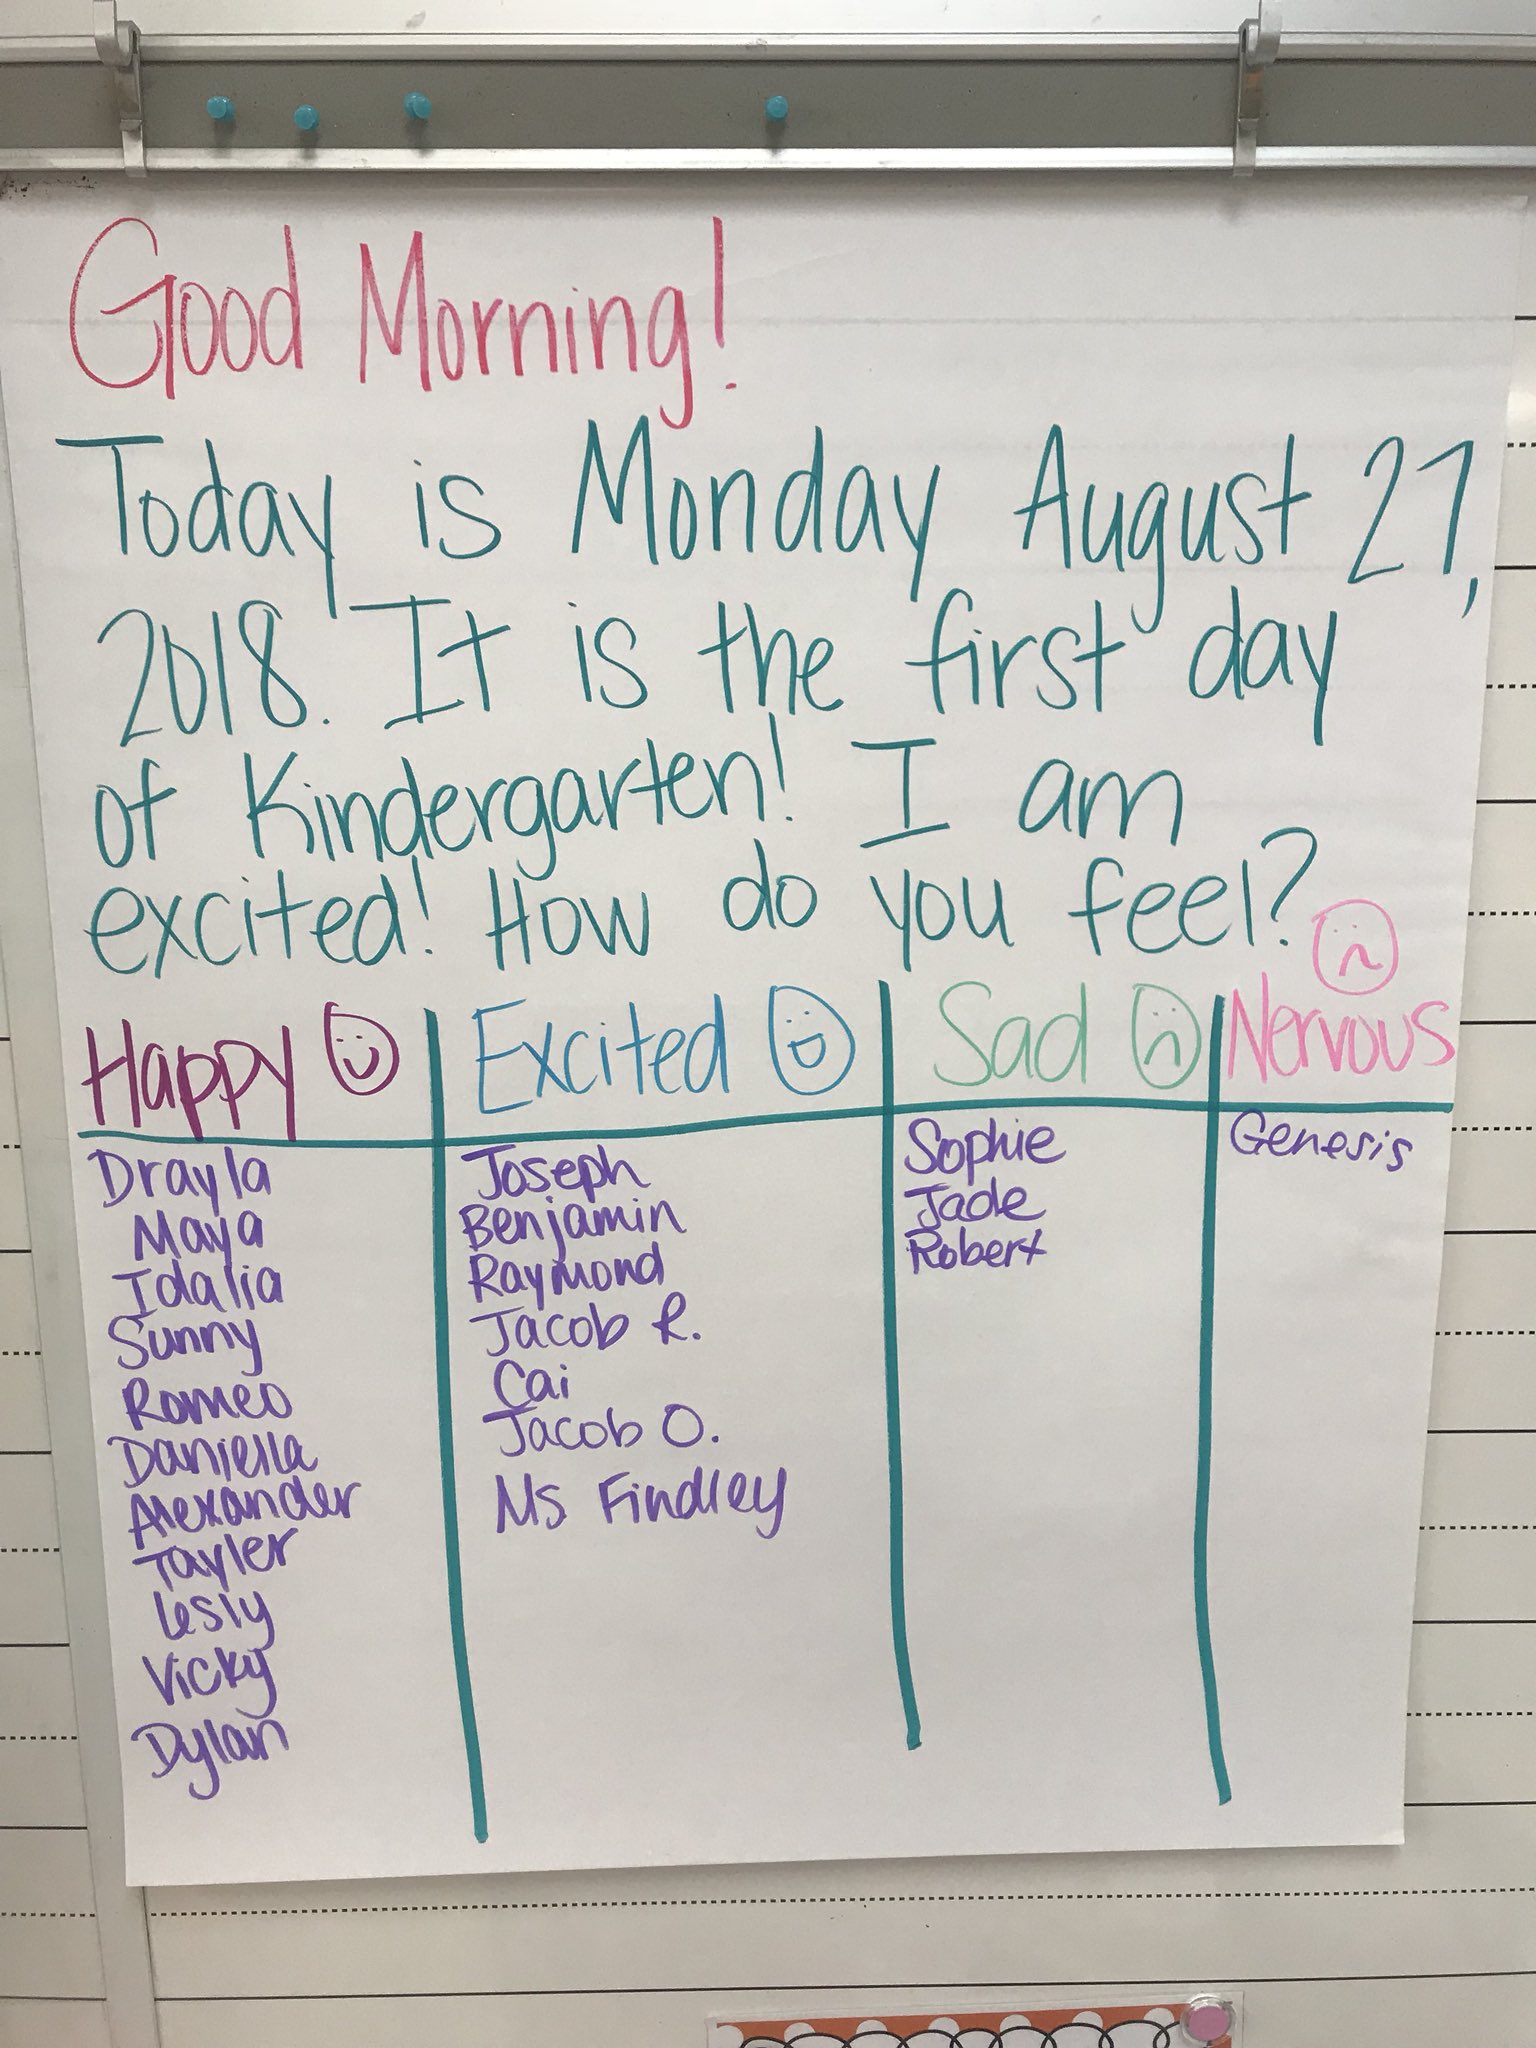 Good Morning!
Today is Monday August 27,
2018. It is the first day
of Kindergarten! I am
excited! How do you feel?
Happy Excited Sad Nervous
Drayla
Maya
Idalia
Sunny
Romeo
Daniella
Alexander
Tayler
Lesly
Vicky
Dylan
Joseph
Benjamin
Raymond
Jacob R.
Cai
Jacob O.
Ms Findley
Sophie
Jade
Robert
Genesis